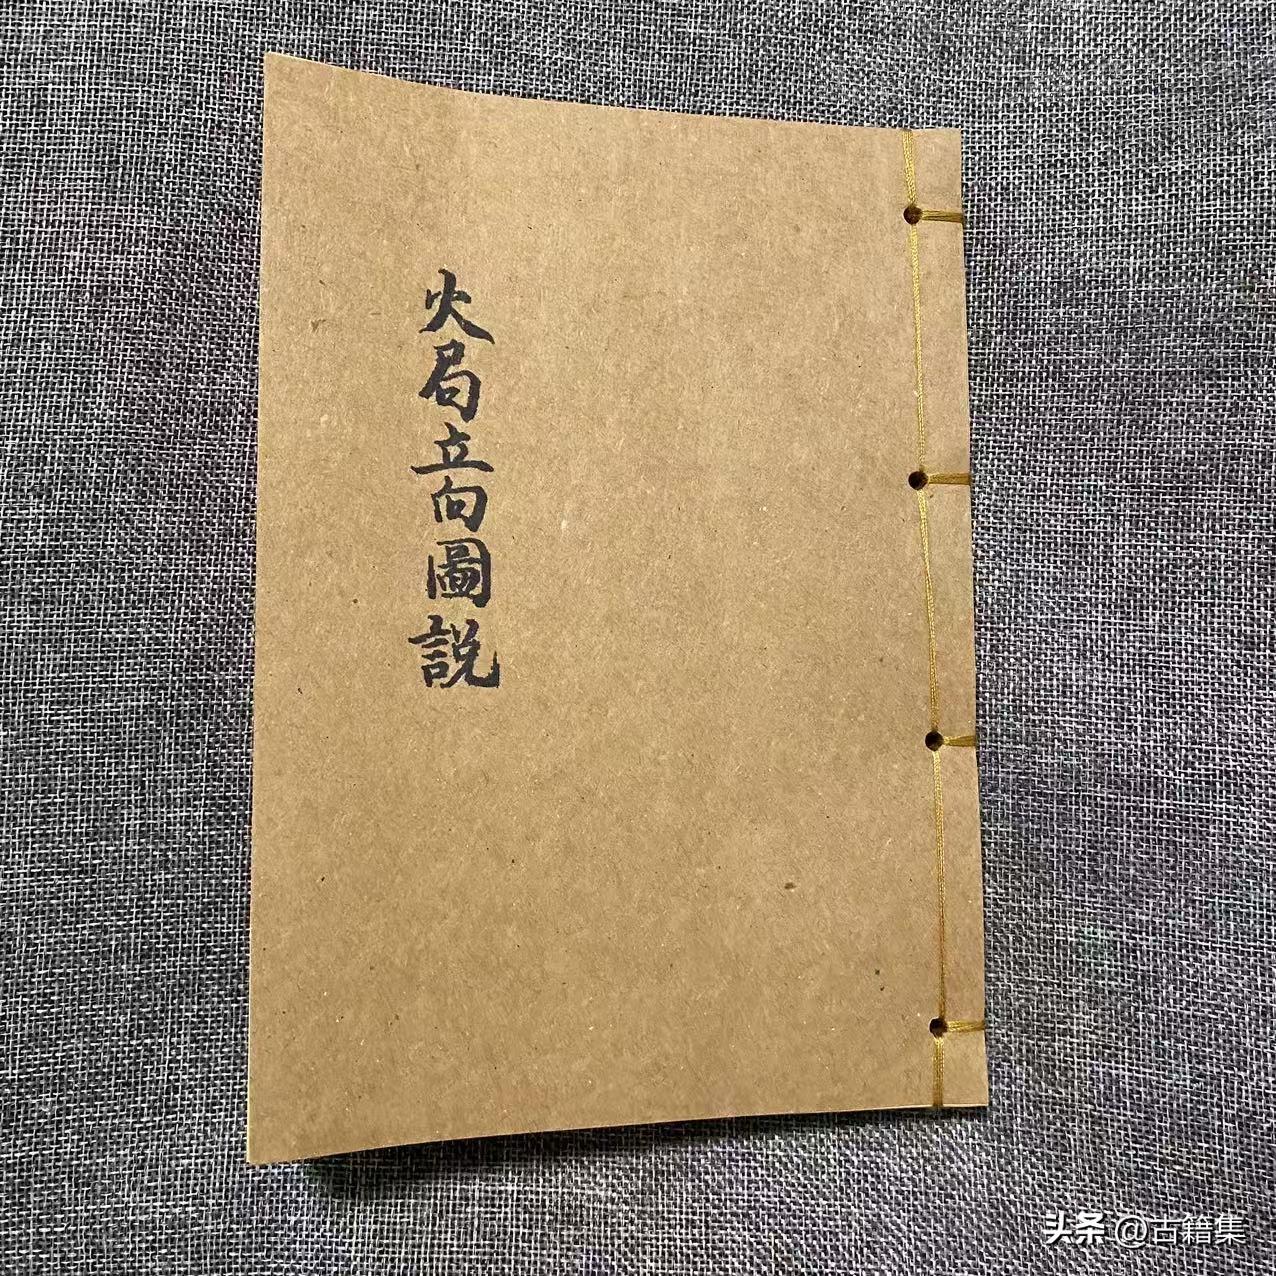 火局立向圖説
头条 @古籍集